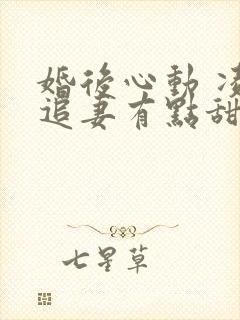 婚後心動 凌
追妻有點甜
七星草